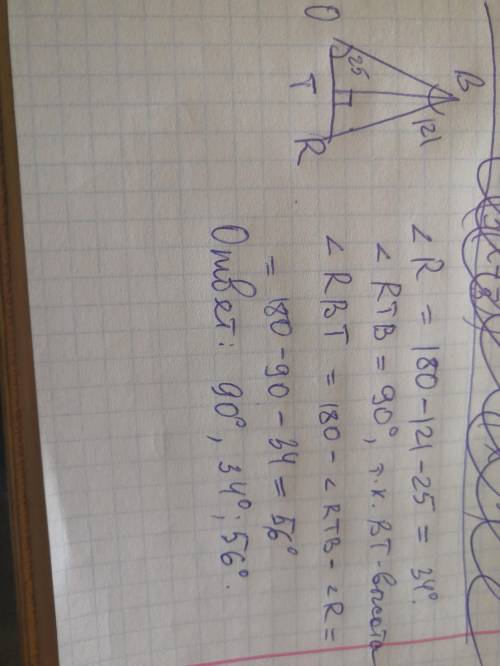 B
121
25
O
T
R
∠ R = 180 - 121 - 25 = 34°.
∠ RTB = 90°, т.к. BT - высота
∠ RBT = 180 - ∠ RTB - ∠R =
= 180 - 90 - 34 = 56°
Ответ: 90°, 34°; 56°.